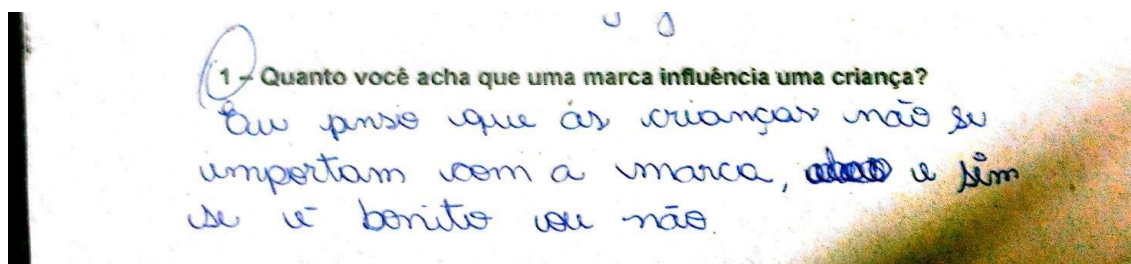 1 – Quanto você acha que uma marca influência uma criança?
Eu penso que ás crianças não se
importam com a marca, e sim
se é bonito ou não.